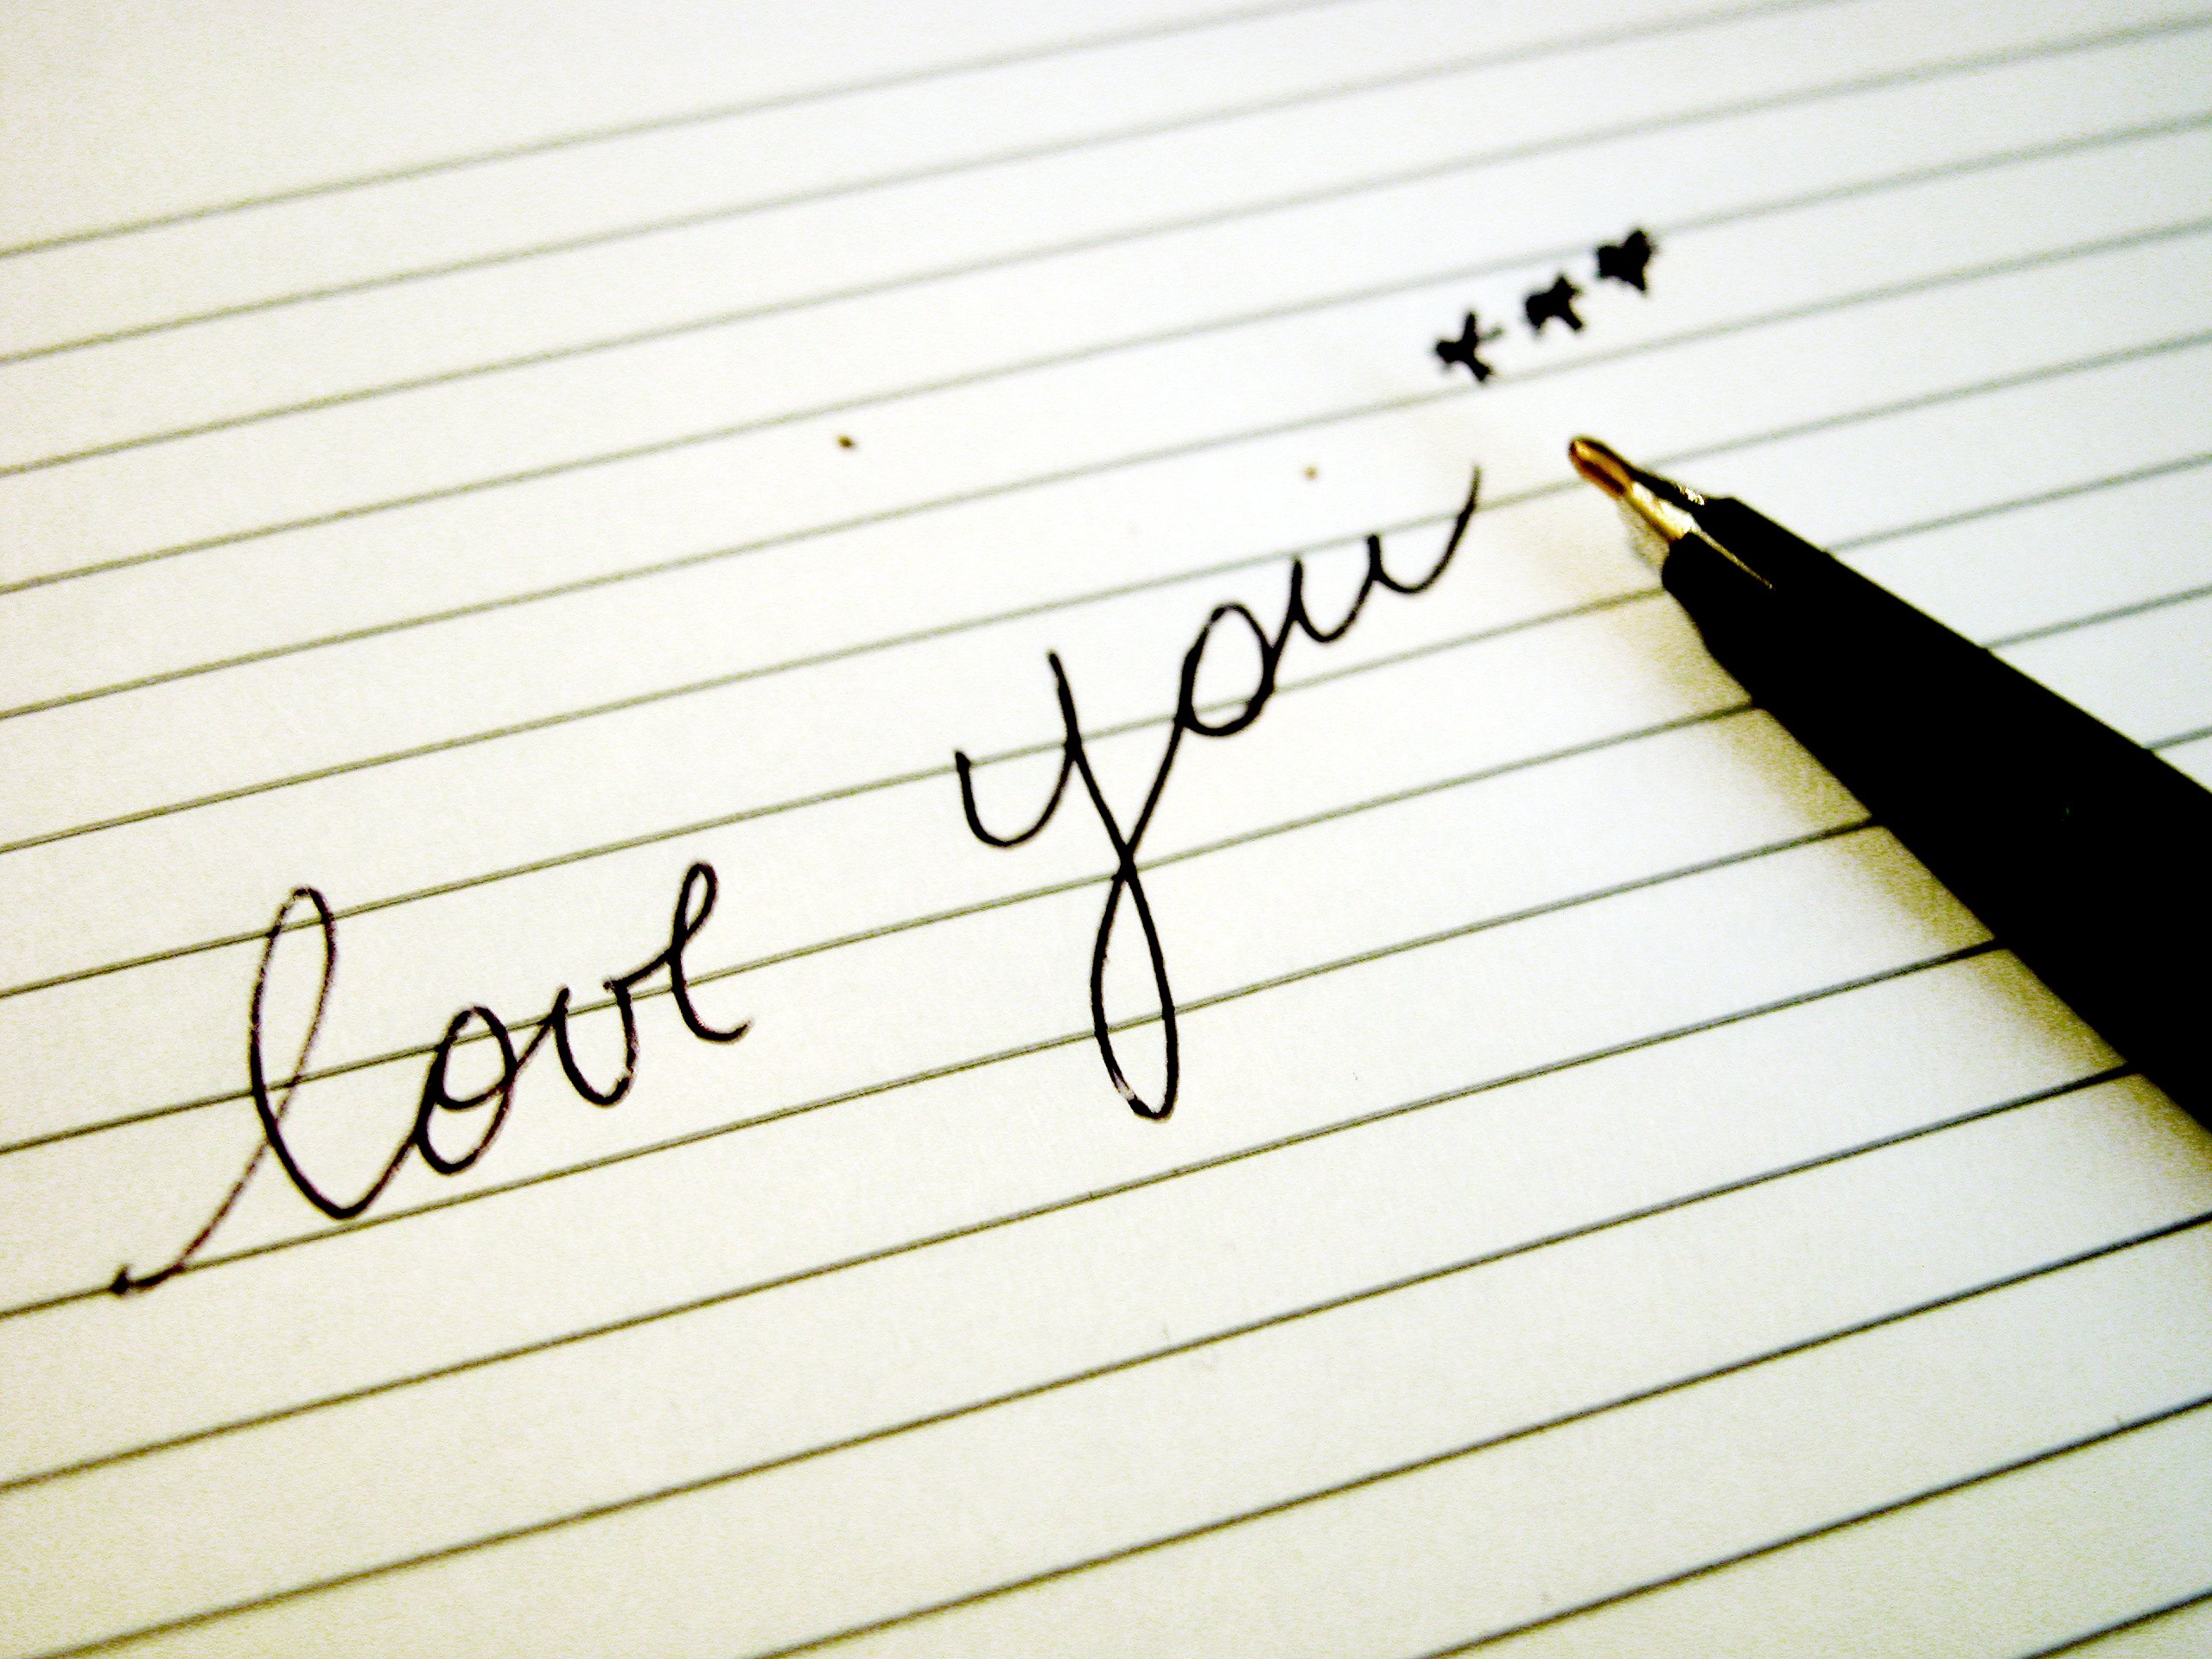 love you ***